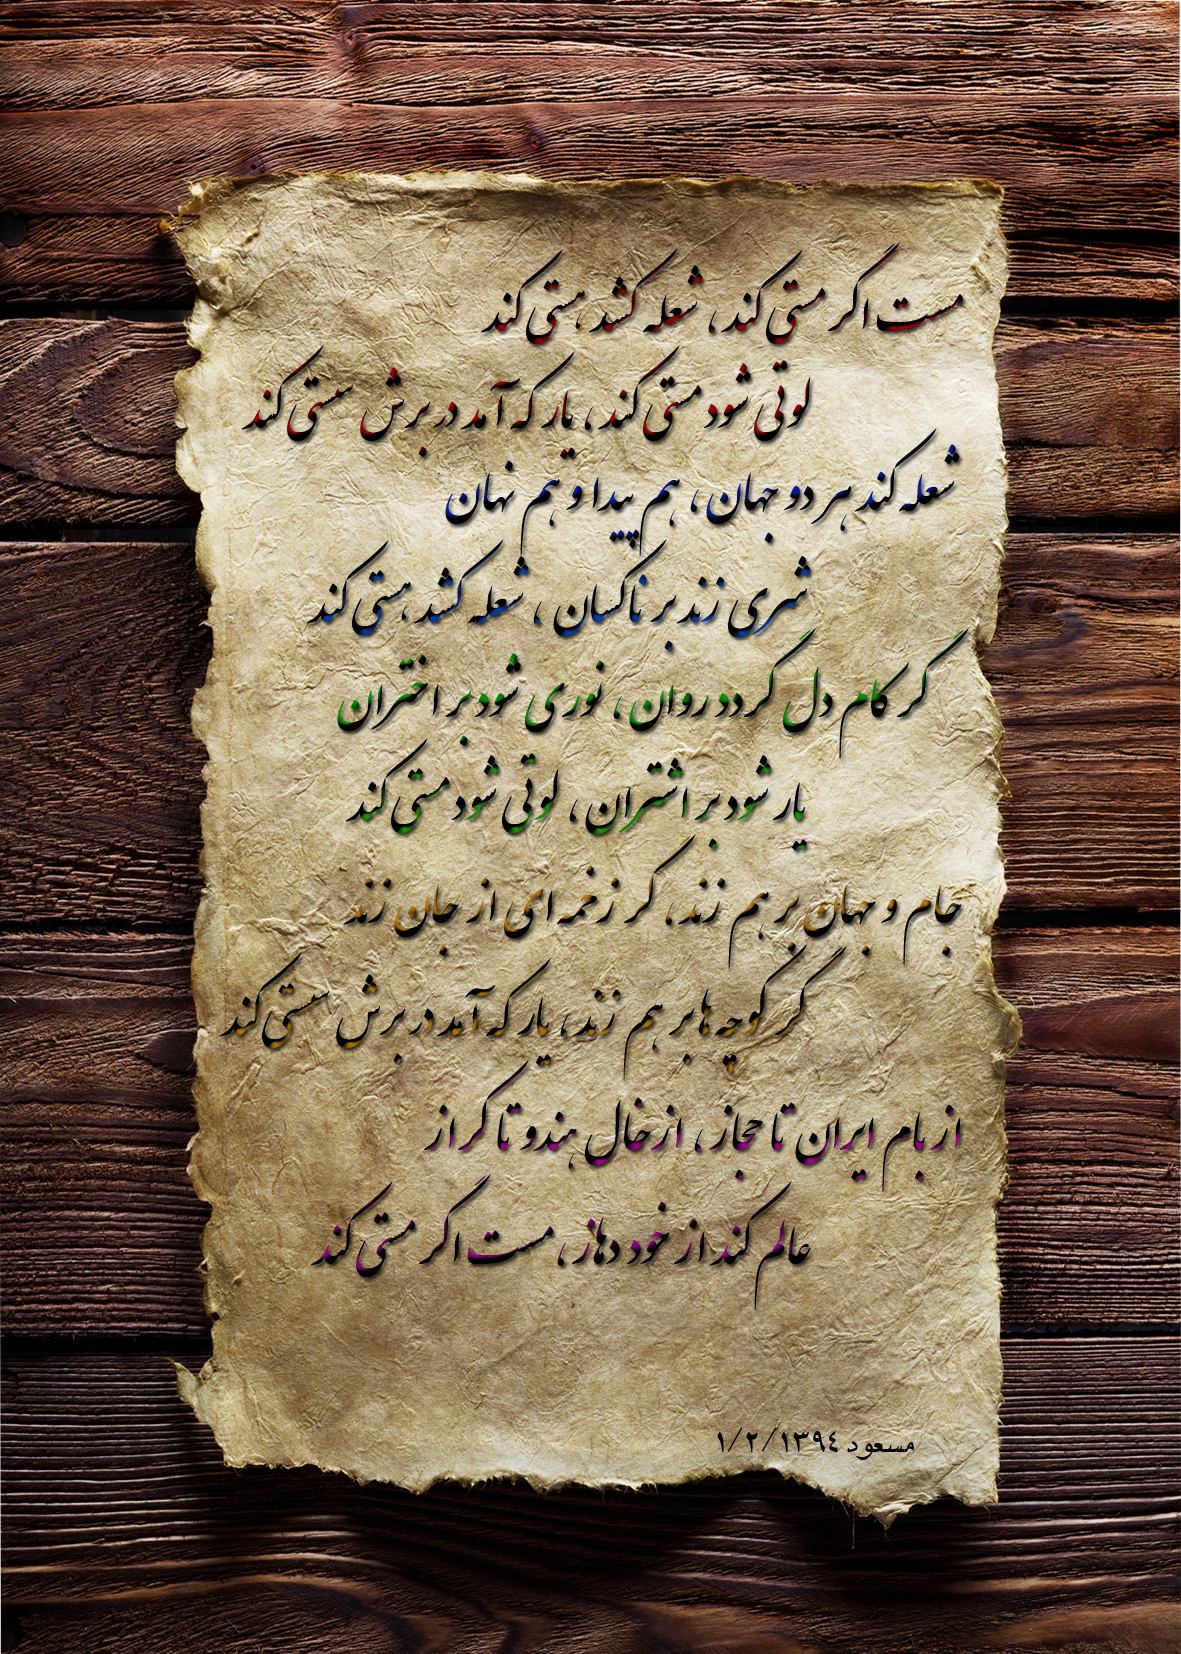 مست اگر مستی کند، شعله کشد هستی کند
لوتی شود مستی کند، یار که آمد در برش سستی کند
شعله کند هر دو جهان، هم پیدا و هم نهان
شرری زند بر ناکسان، شعله کشد هستی کند
گر کام دل گردد روان، نوری شود بر اختران
یار شود بر اشتران، لوتی شود مستی کند
جام و جهان بر هم زند، گر زخمه ای از جان زند
گر کوچه ها بر هم زند، یار که آمد در برش سستی کند
از بام ایران تا حجاز، از خال هندو تا گراز
عالم کند از خود دهاز، مست اگر مستی کند
مسعود ۱/۲/۱۳۹۴